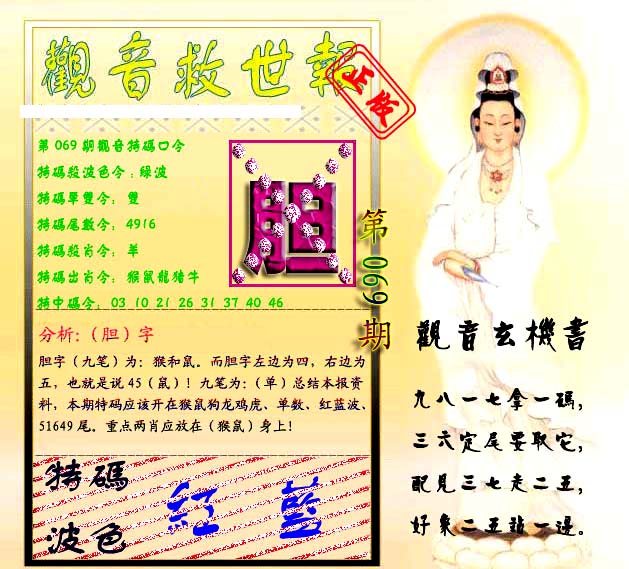 觀音救世報
正版
第069期觀音特碼口令
特碼殺波色令：綠波
特碼單雙令： 雙
特碼尾數令： 4916
特碼殺肖令： 羊
特碼出肖令： 猴鼠龍猪牛
特中碼令： 03 10 21 26 31 37 40 46
胆
第069期
分析:（胆）字
胆字（九笔）为：猴和鼠。而胆字左边为四，右边为
五，也就是说 45（鼠）！九笔为：（单）总结本报资
料，本期特码应该开在猴鼠狗龙鸡虎、单数、红蓝波、
51649 尾。重点两肖应放在（猴鼠）身上！
特碼
波色
紅 藍
觀音玄機書
九八一七拿一碼，
三六定尾要取它，
配見三七走二五，
好象二五站一邊。